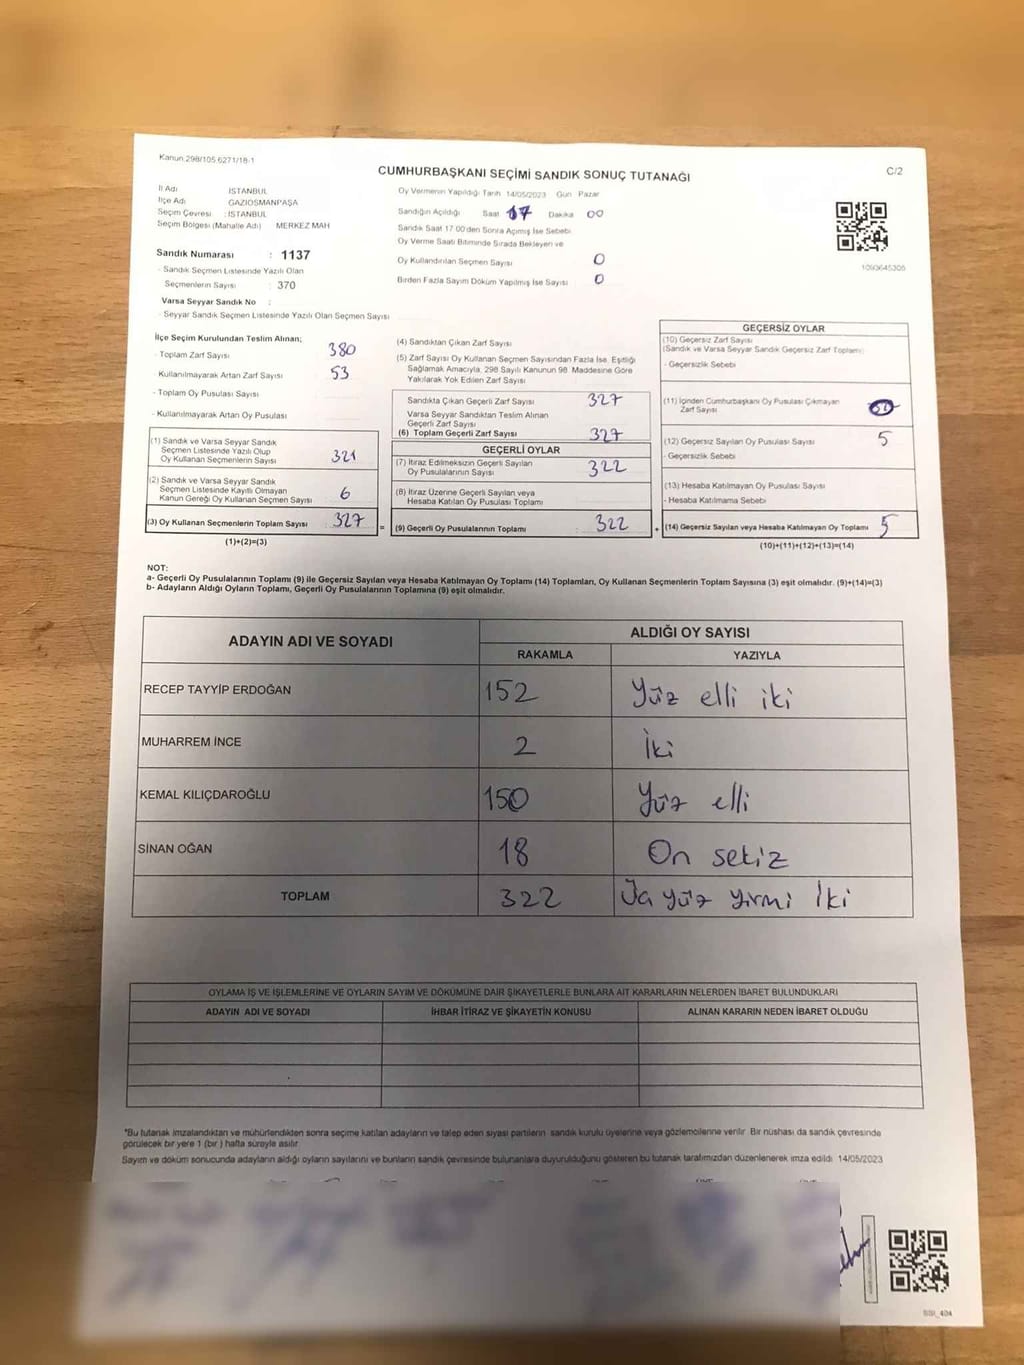 Kanun.298/105.6271/18-1
CUMHURBAŞKANI SEÇİMİ SANDIK SONUÇ TUTANAĞI
C/2
İl Adı İSTANBUL
İlçe Adı GAZİOSMANPAŞA
Seçim Çevresi : İSTANBUL
Seçim Bölgesi (Mahalle Adı) MERKEZ MAH
Sandık Numarası : 1137
- Sandık Seçmen Listesinde Yazılı Olan
Seçmenlerin Sayısı : 370
Varsa Seyyar Sandık No :
- Seyyar Sandık Seçmen Listesinde Yazılı Olan Seçmen Sayısı
Oy Vermenin Yapıldığı Tarih 14/05/2023 Gün Pazar
Sandığın Açıldığı Saat 17 Dakika 00
Sandık Saat 17 00'den Sonra Açılmış İse Sebebi
Oy Verme Saati Bitiminde Sırada Bekleyen ve
Oy Kullandırılan Seçmen Sayısı 0
Birden Fazla Sayım Döküm Yapılmış İse Sayısı 0
1090645305
İlçe Seçim Kurulundan Teslim Alınan;
- Toplam Zarf Sayısı 380
- Kullanılmayarak Artan Zarf Sayısı 53
- Toplam Oy Pusulası Sayısı
- Kullanılmayarak Artan Oy Pusulası
(1) Sandık ve Varsa Seyyar Sandık
Seçmen Listesinde Yazılı Olup
Oy Kullanan Seçmenlerin Sayısı 321
(2) Sandık ve Varsa Seyyar Sandık
Seçmen Listesinde Kayıtlı Olmayan
Kanun Gereği Oy Kullanan Seçmen Sayısı 6
(3) Oy Kullanan Seçmenlerin Toplam Sayısı : 327 =
(1)+(2)=(3)
(4) Sandıktan Çıkan Zarf Sayısı
(5) Zarf Sayısı Oy Kullanan Seçmen Sayısından Fazla İse, Eşitliği
Sağlamak Amacıyla, 298 Sayılı Kanunun 98. Maddesine Göre
Yakılarak Yok Edilen Zarf Sayısı
Sandıkta Çıkan Geçerli Zarf Sayısı 327
Varsa Seyyar Sandıktan Teslim Alınan
Geçerli Zarf Sayısı
(6) Toplam Geçerli Zarf Sayısı 327
GEÇERLİ OYLAR
(7) İtiraz Edilmeksizin Geçerli Sayılan
Oy Pusulalarının Sayısı 322
(8) İtiraz Üzerine Geçerli Sayılan veya
Hesaba Katılan Oy Pusulası Toplamı
(9) Geçerli Oy Pusulalarının Toplamı : 322 +
GEÇERSİZ OYLAR
(10) Geçersiz Zarf Sayısı
(Sandık ve Varsa Seyyar Sandık Geçersiz Zarf Toplamı)
- Geçersizlik Sebebi
(11) İçinden Cumhurbaşkanı Oy Pusulası Çıkmayan
Zarf Sayısı
(12) Geçersiz Sayılan Oy Pusulası Sayısı 5
- Geçersizlik Sebebi
(13) Hesaba Katılmayan Oy Pusulası Sayısı
- Hesaba Katılmama Sebebi
(14) Geçersiz Sayılan veya Hesaba Katılmayan Oy Toplamı 5
(10)+(11)+(12)+(13)=(14)
NOT:
a- Geçerli Oy Pusulalarının Toplamı (9) ile Geçersiz Sayılan veya Hesaba Katılmayan Oy Toplamı (14) Toplamları, Oy Kullanan Seçmenlerin Toplam Sayısına (3) eşit olmalıdır. (9)+(14)=(3)
b- Adayların Aldığı Oyların Toplamı, Geçerli Oy Pusulalarının Toplamına (9) eşit olmalıdır.
ADAYIN ADI VE SOYADI
ALDIĞI OY SAYISI
RAKAMLA YAZIYLA
RECEP TAYYİP ERDOĞAN 152 Yüz elli iki
MUHARREM İNCE 2 İki
KEMAL KILIÇDAROĞLU 150 Yüz elli
SİNAN OĞAN 18 On sekiz
TOPLAM 322 yüz yirmi iki
OYLAMA İŞ VE İŞLEMLERİNE VE OYLARIN SAYIM VE DÖKÜMÜNE DAİR ŞİKAYETLERLE BUNLARA AİT KARARLARIN NELERDEN İBARET BULUNDUKLARI
ADAYIN ADI VE SOYADI İHBAR İTİRAZ VE ŞİKAYETİN KONUSU ALINAN KARARIN NEDEN İBARET OLDUĞU
*Bu tutanak imzalandıktan ve mühürlendikten sonra seçime katılan adayların ve talep eden siyasi partilerin sandık kurulu üyelerine veya gözlemcilerine verilir. Bir nüshası da sandık çevresinde
görülecek bir yere 1 (bir ) hafta süreyle asılır.
Sayım ve döküm sonucunda adayların aldığı oyların sayılarını ve bunların sandık çevresinde bulunanlara duyurulduğunu gösteren bu tutanak tarafımızdan düzenlenerek imza edildi. 14/05/2023